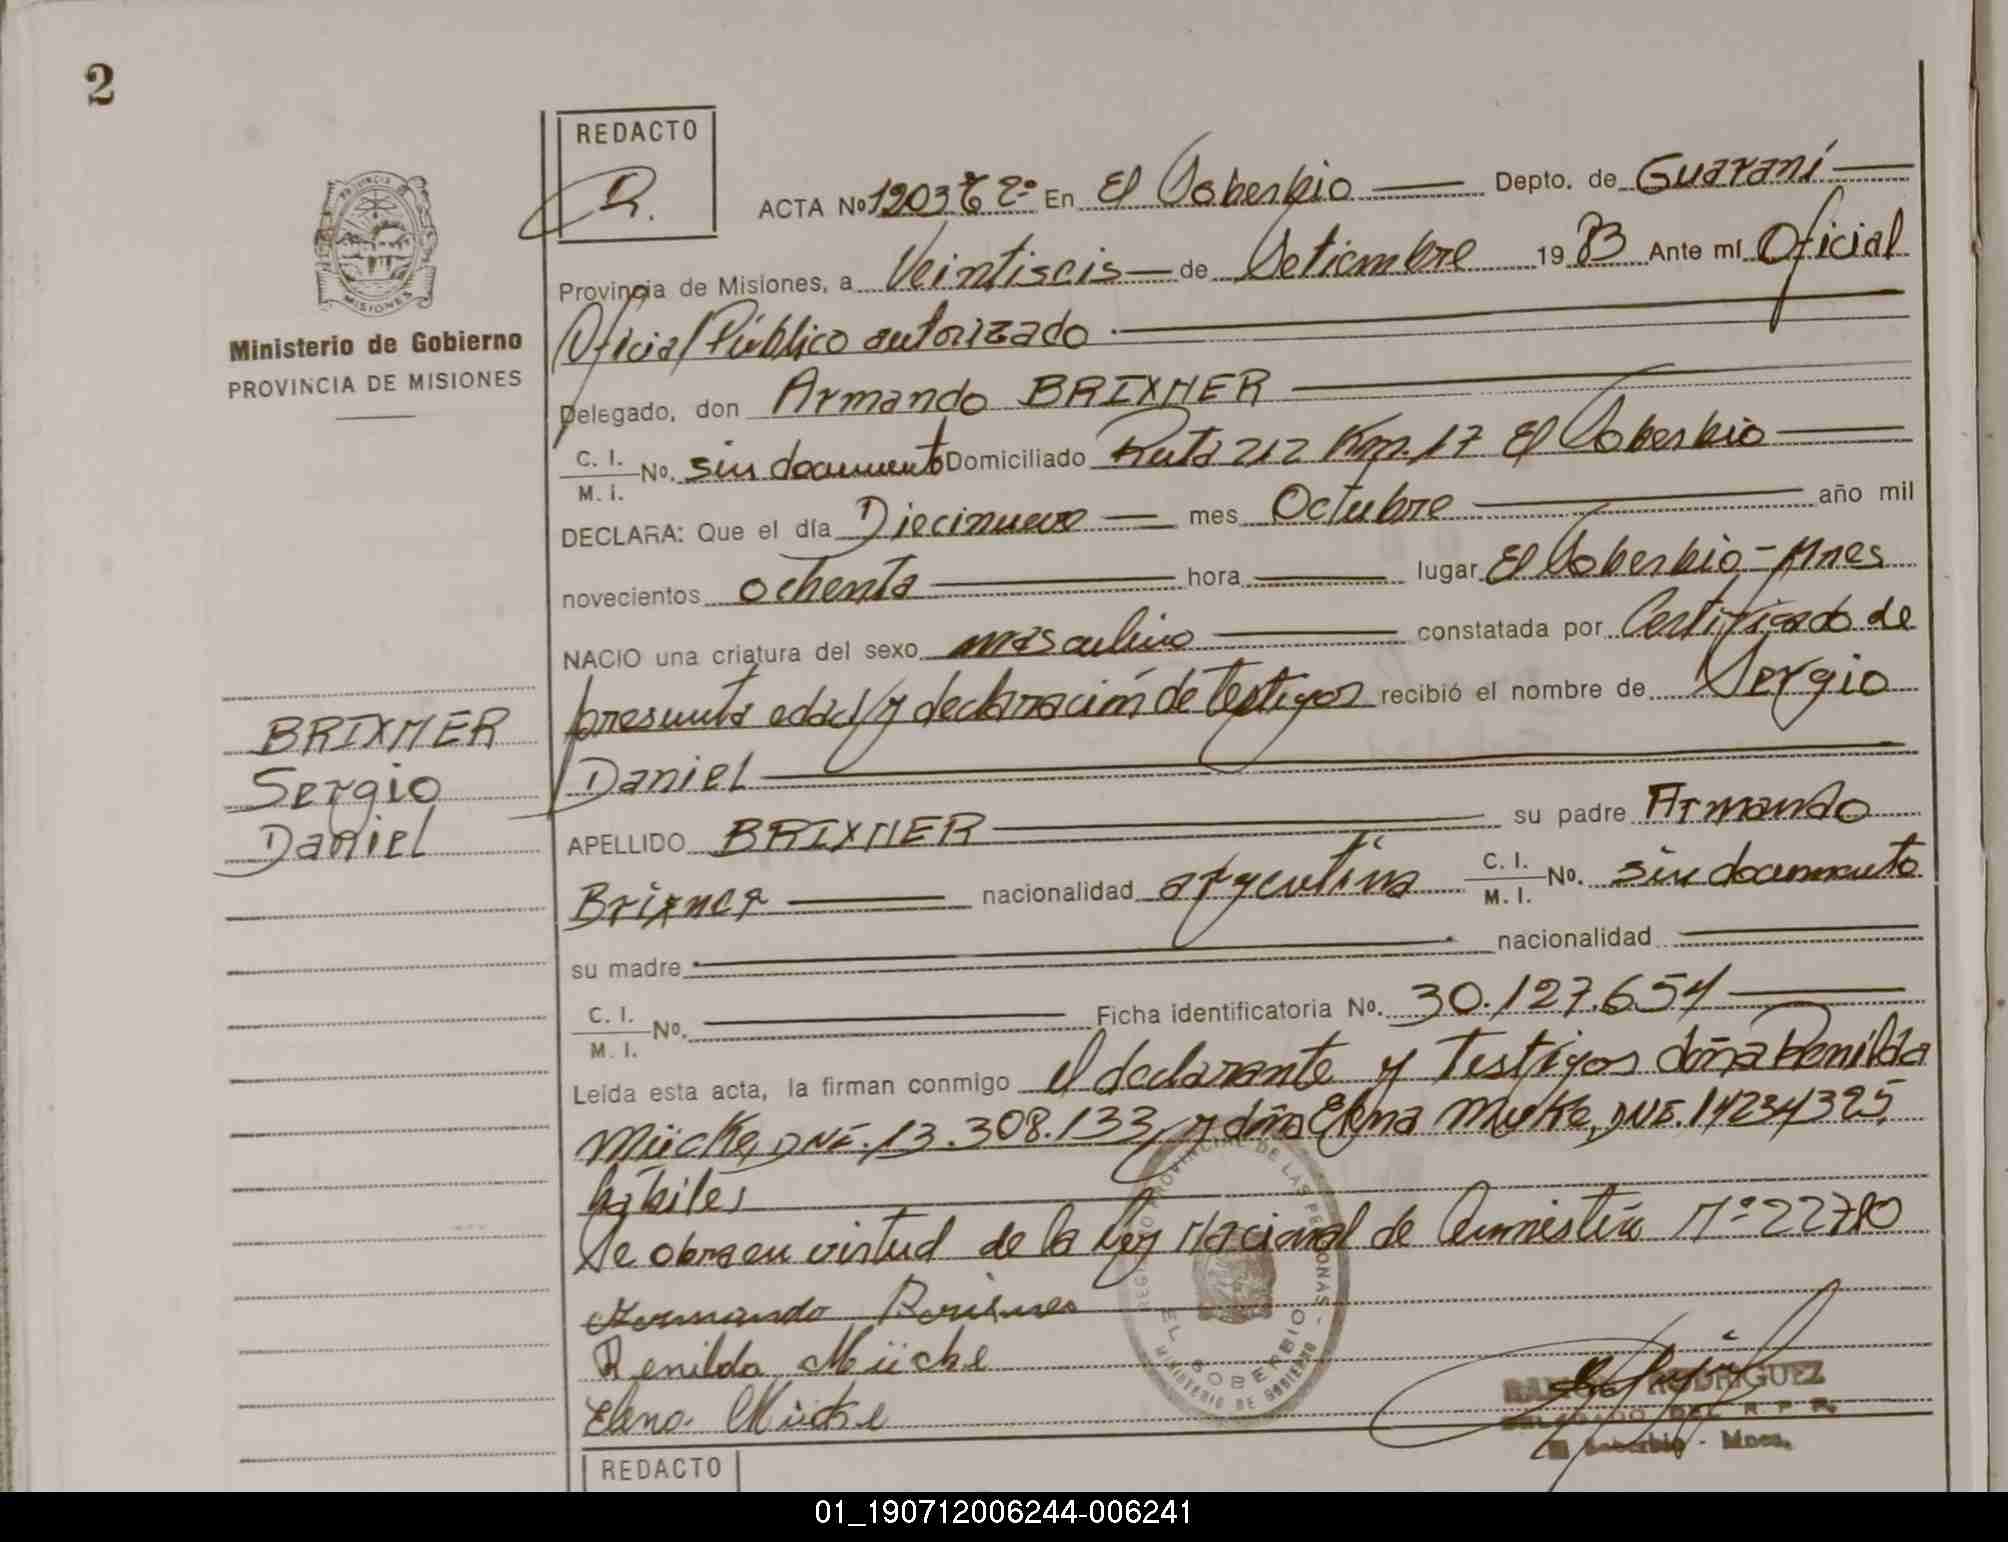 2
REDACTO
PROVINCIA DE
MISIONES
Ministerio de Gobierno
PROVINCIA DE MISIONES
ACTA No 1203 T 2º En El Soberbio Depto. de Guaraní
Provincia de Misiones, a Veintiseis de Setiembre 19 83 Ante mí Oficial
Oficial Público autorizado
Delegado, don Armando BRIXNER
C. I. M. I. No. sin documento Domiciliado Ruta 212 Km. 17 El Soberbio
DECLARA: Que el día Diecinueve mes Octubre año mil
novecientos ochenta hora lugar El Soberbio - Mnes
NACIO una criatura del sexo masculino constatada por Certificado de
presunta edad y declaración de testigos recibió el nombre de Sergio
Daniel
BRIXNER
Sergio
Daniel
APELLIDO BRIXNER su padre Armando
Brixner nacionalidad argentina C. I. M. I. No. sin documento
su madre nacionalidad
C. I. M. I. No. Ficha identificatoria No. 30.127.654
Leída esta acta, la firman conmigo el declarante y testigos doña Renilda
Mücke, DNI. 13.308.133 y doña Elena Mücke, DNI. 14234325
hábiles
Se obra en virtud de la Ley Nacional de Amnistía Nº 22780
Armando Brixner
Renilda Mücke
Elena Mücke
REGISTRO PROVINCIAL DE LAS PERSONAS -
EL SOBERBIO
MINISTERIO DE GOBIERNO
RODRIGUEZ
DELEGADO DEL R. P. P.
El Soberbio - Mnes.
REDACTO
01_190712006244-006241